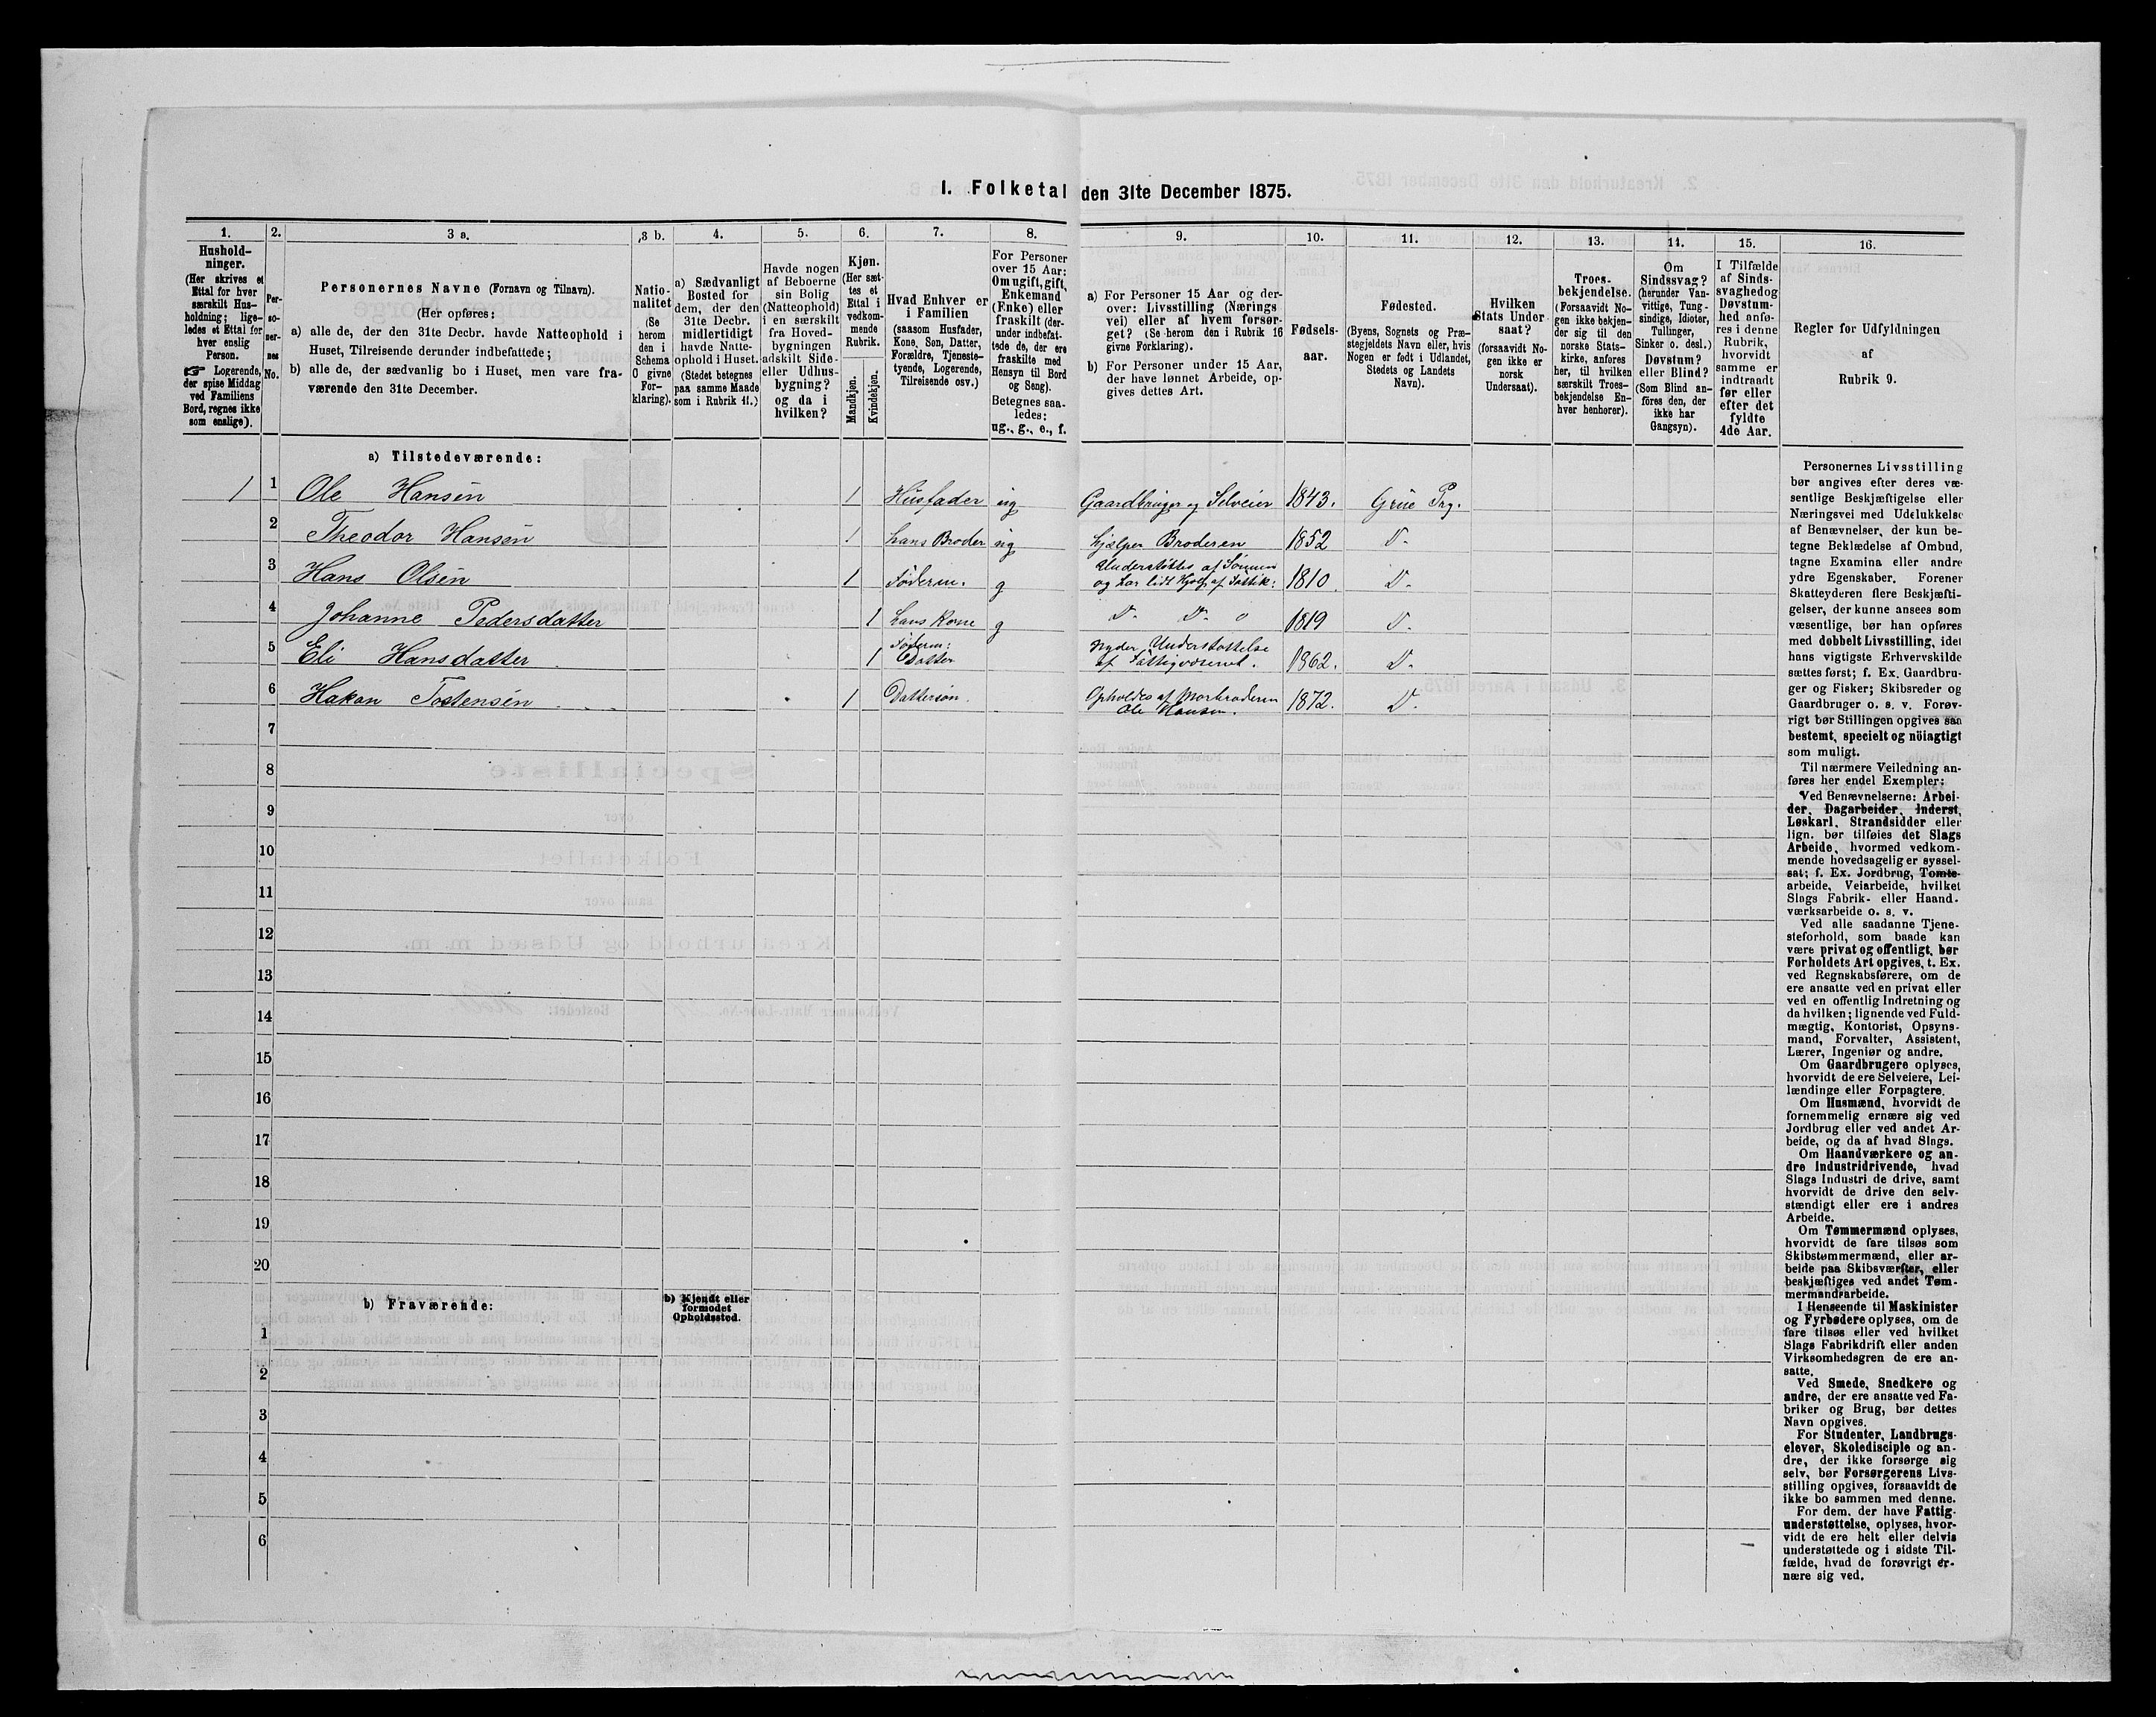 1. Folketal den 31te December 1875.
1.
2.
3 a.
3 b.
4.
5.
6.
7.
8.
9.
10.
11.
12.
13.
14.
15.
16.
Hushold-
ninger.
(Her skrives et
Ettal for hver
særskilt Hus-
holdning; lige-
ledes et Ettal for
hver enslig
Person.
☞ Logerende,
der spise Middag
ved Familiens
Bord, regnes ikke
som enslige).
Per-
so-
ner-
nes
No.
Personernes Navne (Fornavn og Tilnavn).
(Her opføres:
a) alle de, der den 31te Decbr. havde Natteophold i
Huset, Tilreisende derunder indbefattede;
b) alle de, der sædvanlig bo i Huset, men vare fra-
værende den 31te December.
Natio-
nalitet
(Se
herom
den i
Schema
O givne
For-
klaring).
a) Sædvanligt
Bosted for
dem, der den
31te Decbr.
midlertidigt
havde Natte-
ophold i Huset.
(Stedet betegnes
paa samme Maade
som i Rubrik 11.)
Havde nogen
af Beboerne
sin Bolig
(Natteophold)
i en særskilt
fra Hoved-
bygningen
adskilt Side-
eller Udhus-
bygning?
og da i
hvilken?
Kjøn.
(Her sæt-
tes et
Ettal i
vedkom-
mende
Rubrik.
Mandkjøn.
Kvindekjøn.
Hvad Enhver er
i Familien
(saasom Husfader,
Kone, Søn, Datter,
Forældre, Tjeneste-
tyende, Logerende,
Tilreisende osv.)
For Personer
over 15 Aar:
Om ugift, gift,
Enkemand
(Enke) eller
fraskilt (der-
under indbefat-
tede de, der ere
fraskilte med
Hensyn til Bord
og Seng).
Betegnes saa-
ledes:
ug., g., e., f.
a) For Personer 15 Aar og der-
over: Livsstilling (Nærings
vei) eller af hvem forsør-
get? (Se herom den i Rubrik 16
givne Forklaring).
b) For Personer under 15 Aar,
der have lønnet Arbeide, op-
gives dettes Art.
Fødsels-
aar.
Fødested.
(Byens, Sognets og Præ-
stegjeldets Navn eller, hvis
Nogen er født i Udlandet,
Stedets og Landets
Navn).
Hvilken
Stats Under
saat?
(forsaavidt No-
gen ikke er
norsk
Undersaat).
Troes-
bekjendelse.
(Forsaavidt No-
gen ikke bekjen-
der sig til den
norske Stats-
kirke, anføres
her, til hvilken
særskilt Troes-
bekjendelse En-
hver henhører).
Om
Sindssvag?
(herunder Van-
vittige, Tung-
sindige, Idioter,
Tullinger,
Sinker o. desl.)
Døvstum?
eller Blind?
(Som Blind an-
föres den, der
ikke har
Gangsyn).
I Tilfælde
af Sinds-
svaghedog
Døvstum-
hed anfø-
res i denne
Rubrik,
hvorvidt
samme er
indtraadt
før eller
efter det
fyldte
4de Aar.
Regler for Udfyldningen
af
Rubrik 9.
a) Tilstedeværende:
1 1 Ole Hansen 1 Husfader ug Gaardbruger og Selveier 1843. Grue Prg.
2 Theodor Hansen 1 hans Broder ug hjælper Broderen 1852 D-
3 Hans Olsen 1 Føderm. g Understøttes af Sønnen
og har lidt Hjælp af Fattik: 1810. D-
4 Johanne Pedersdatter 1 hans Kone g D- D- o 1819 D-
5 Eli Hansdatter 1 Føderm:
Datter nyder Understøttelse
af Fattigvæsenet. 1862. D-
6 Hakan Tostensen 1 Dattersøn. Opholdes af Morbroderen
Ole Hansen. 1872. D-
7
8
9
10
11
12
13
14
15
16
17
18
19
20
b) Fraværende:
b) Kjendt eller
formodet
Opholdssted.
1
2
3
4
5
6
Personernes Livsstilling
bør angives efter deres væ-
sentlige Beskjæftigelse eller
Næringsvei med Udelukkelse
af Benævnelser, der kun be-
tegne Beklædelse af Ombud,
tagne Examina eller andre
ydre Egenskaber. Forener
Skatteyderen flere Beskjæfti-
gelser, der kunne ansees som
væsentlige, bør han opføres
med dobbelt Livsstilling, idet
hans vigtigste Erhvervskilde
sættes først; f. Ex. Gaardbru-
ger og Fisker; Skibsreder og
Gaardbruger o. s. v. Forøv-
rigt bør Stillingen opgives saa
bestemt, specielt og nöiagtigt
som muligt.
Til nærmere Veiledning an-
føres her endel Exempler:
Ved Benævnelserne: Arbei-
der, Dagarbeider, Inderst,
Løskarl, Strandsidder eller
lign. bør tilføies det Slags
Arbeide, hvormed vedkom-
mende hovedsagelig er syssel-
sat; f. Ex. Jordbrug, Tomte-
arbeide, Veiarbeide, hvilket
Slags Fabrik- eller Haand-
værksarbeide o. s. v.
Ved alle saadanne Tjene-
steforhold, som baade kan
være privat og offentligt, bør
Forholdets Art opgives, t. Ex.
ved Regnskabsførere, om de
ere ansatte ved en privat eller
ved en offentlig Indretning og
da hvilken; lignende ved Fuld-
mægtig, Kontorist, Opsyns-
mand, Forvalter, Assistent,
Lærer, Ingeniør og andre.
Om Gaardbrugere oplyses,
hvorvidt de ere Selveiere, Lei-
lændinge eller Forpagtere.
Om Husmænd, hvorvidt de
fornemmelig ernære sig ved
Jordbrug eller ved andet Ar-
beide, og da af hvad Slags.
Om Haandværkere og an-
dre Industridrivende, hvad
Slags Industri de drive, samt
hvorvidt de drive den selv-
stændigt eller ere i andres
Arbeide.
Om Tømmermænd oplyses,
hvorvidt de fare tilsøs som
Skibstømmermænd, eller ar-
beide paa Skibsværfter, eller
beskjæftiges ved andet Tøm-
mermandsarbeide.
I Henseende til Maskinister
og Fyrbødere oplyses, om de
fare tilsøs eller ved hvilket
Slags Fabrikdrift eller anden
Virksomhedsgren de ere an-
satte.
Ved Smede, Snedkere og
andre, der ere ansatte ved Fa-
briker og Brug, bør dettes
Navn opgives.
For Studenter, Landbrugs-
elever, Skoledisciple og an-
dre, der ikke forsørge sig
selv, bør Forsørgerens Livs-
stilling opgives, forsaavidt de
ikke bo sammen med denne.
For dem, der have Fattig-
understøttelse, oplyses, hvor-
vidt de ere helt eller delvis
understøttede og i sidste Til-
fælde, hvad de forøvrigt er-
nære sig ved.